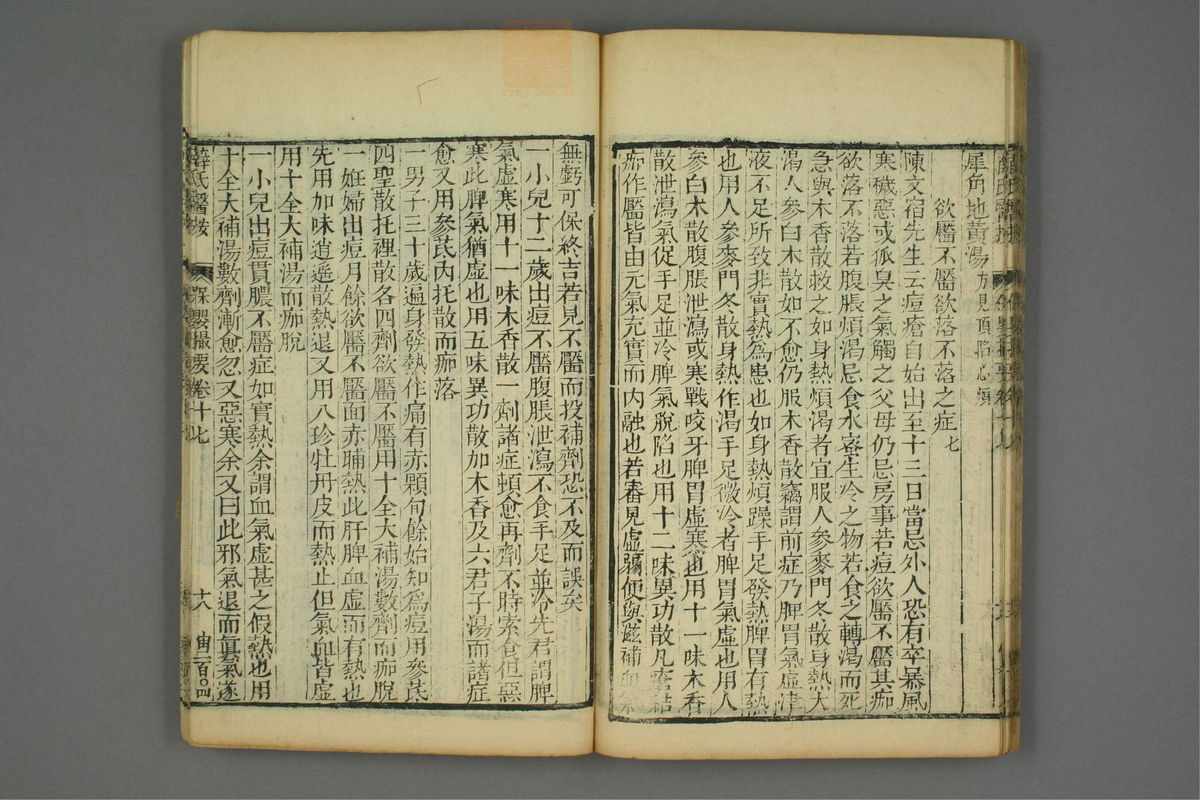 犀角地黃湯方見頂陷心煩
欲靨不靨欲落不落之症七
陳文宿先生云痘瘡自始出至十三日當忌外人恐有卒暴風
寒穢惡或狐臭之氣觸之父母仍忌房事若痘欲靨不靨其痂
欲落不落若腹脹煩渴忌食水蜜生冷之物若食之轉渴而死
急與木香散救之如身熱煩渴者宜服人參麥門冬散身熱大
渴人參白朮散如不愈仍服木香散竊謂前症乃脾胃氣虛津
液不足所致非實熱為患也如身熱煩躁手足發熱脾胃有熱
也用人參麥門冬散身熱作渴手足微冷者脾胃氣虛也用人
參白朮散腹脹泄瀉或寒戰咬牙脾胃虛寒也用十一味木香
散泄瀉氣促手足並冷脾氣脫陷也用十二味異功散凡瘡結
痂作靨皆由元氣充實而內融也若審見虛弱便與滋補血氣
無虧可保終吉若見不靨而投補劑恐不及而誤矣
一小兒十二歲出痘不靨腹脹泄瀉不食手足並冷先君謂脾
氣虛寒用十一味木香散一劑諸症頓愈再劑不時索食但惡
寒此脾氣猶虛也用五味異功散加木香及六君子湯而諸症
愈又用參芪內托散而痂落
一男子三十歲遍身發熱作痛有赤顆旬餘始知為痘用參芪
四聖散托裡散各四劑欲靨不靨用十全大補湯數劑而痂脫
一姙婦出痘月餘欲靨不靨面赤晡熱此肝脾血虛而有熱也
先用加味逍遙散熱退又用八珍牡丹皮而熱止但氣血皆虛
用十全大補湯而痂脫
一小兒出痘貫膿不靨症如實熱余謂血氣虛甚之假熱也用
十全大補湯數劑漸愈忽又惡寒余又曰此邪氣退而真氣遂
薛氏醫按 保嬰撮要卷十七 十八 宙二百〇四